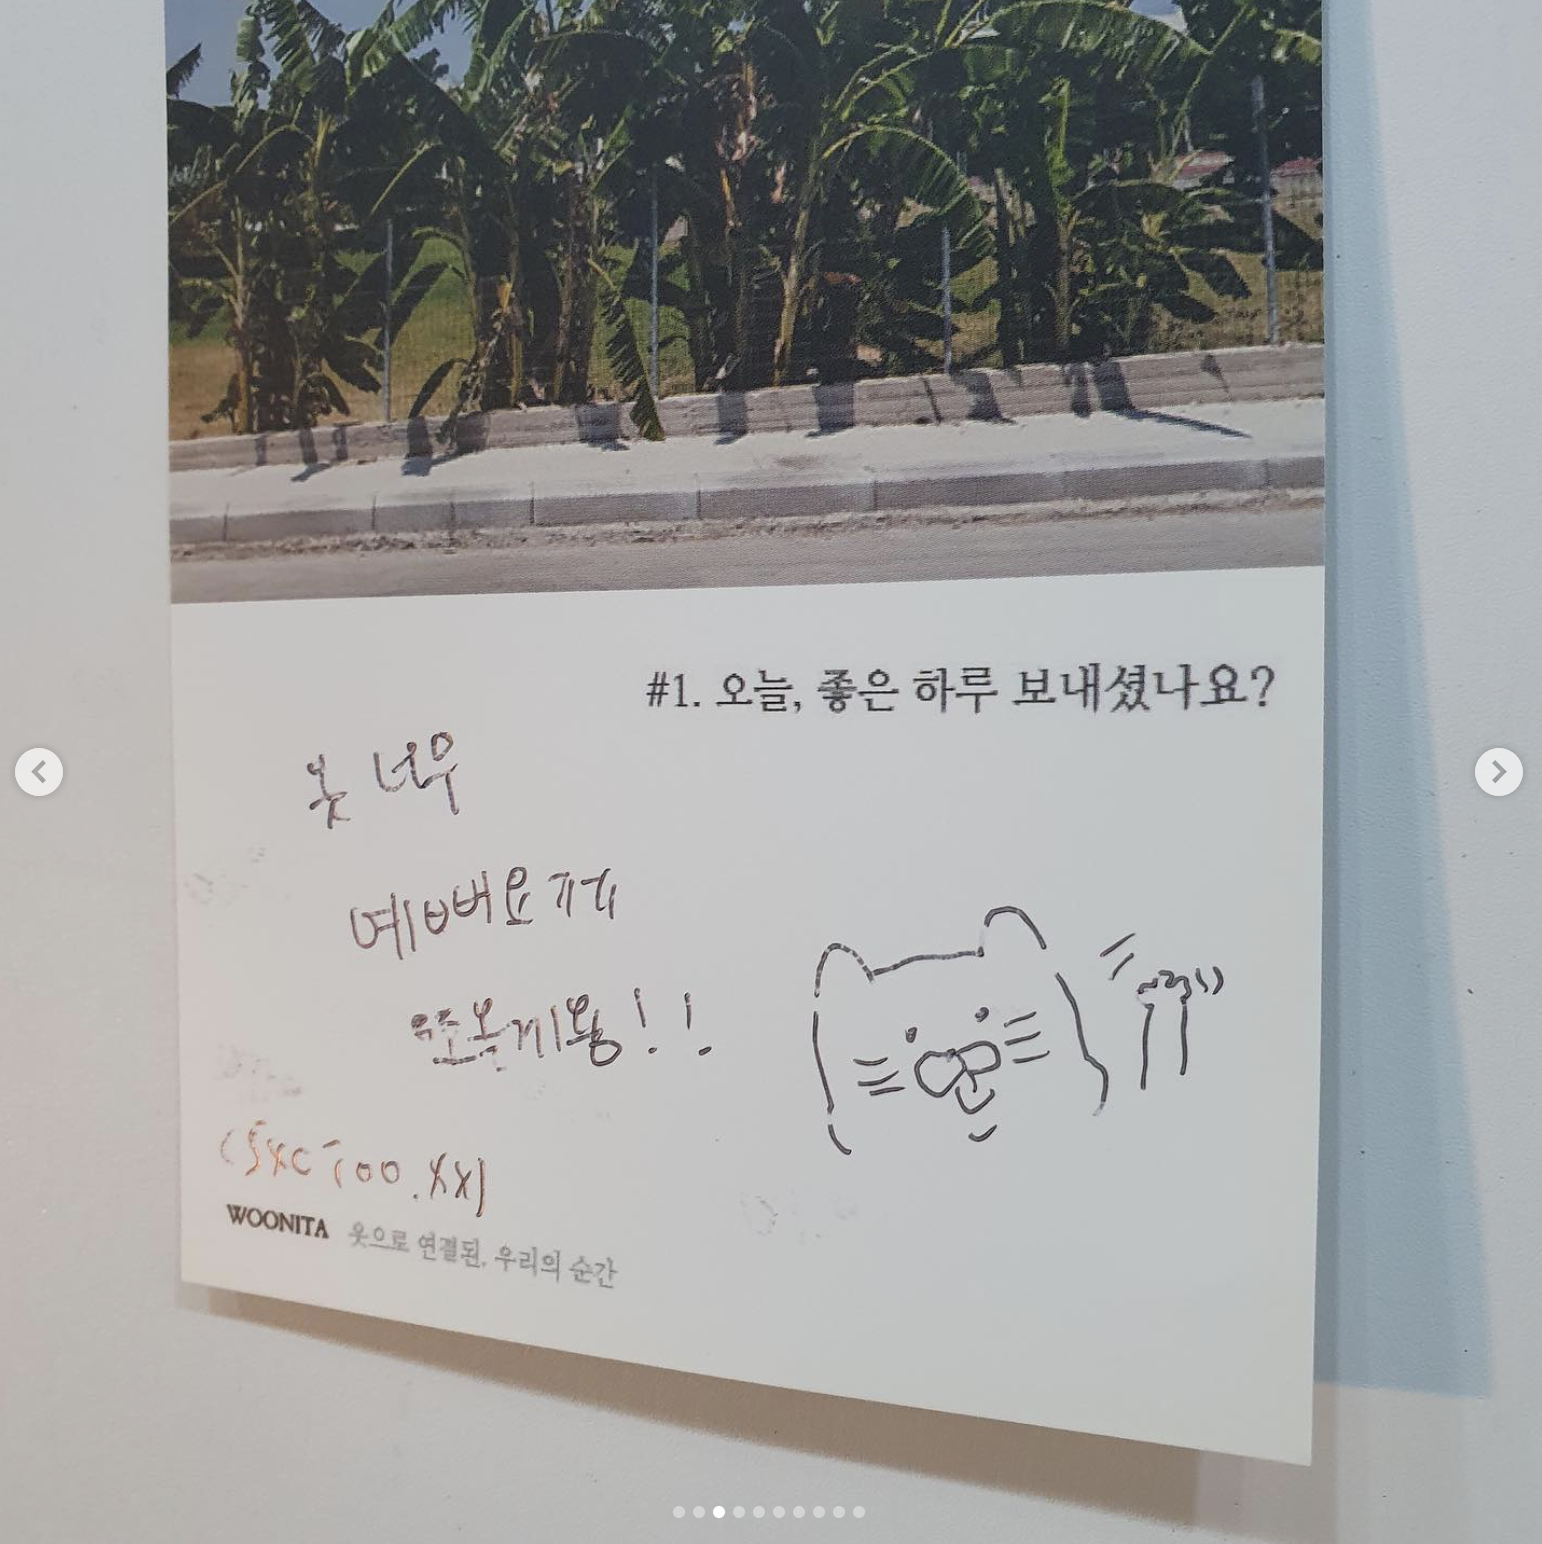 #1. 오늘, 좋은 하루 보내셨나요?
옷 너무
예뻐요
또 올게용!!
WOONITA 옷으로 연결된, 우리의 순간